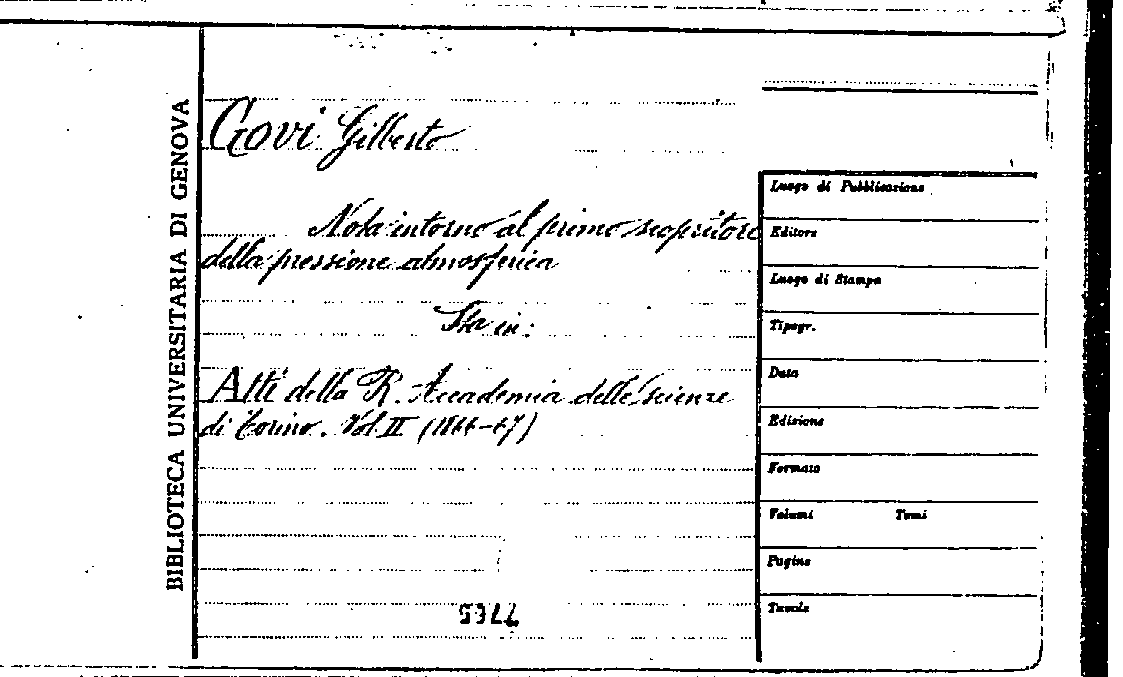 BIBLIOTECA UNIVERSITARIA DI GENOVA
Govi Gilberto
Nota intorno al primo scopritore
della pressione atmosferica
Sta in:
Atti della R. Accademia delle Scienze
di Torino. Vol II (1866-67)
Luogo di Pubblicazione
Editore
Luogo di Stampa
Tipogr.
Data
Edizione
Formato
Volumi Tomi
Pagine
Tavole